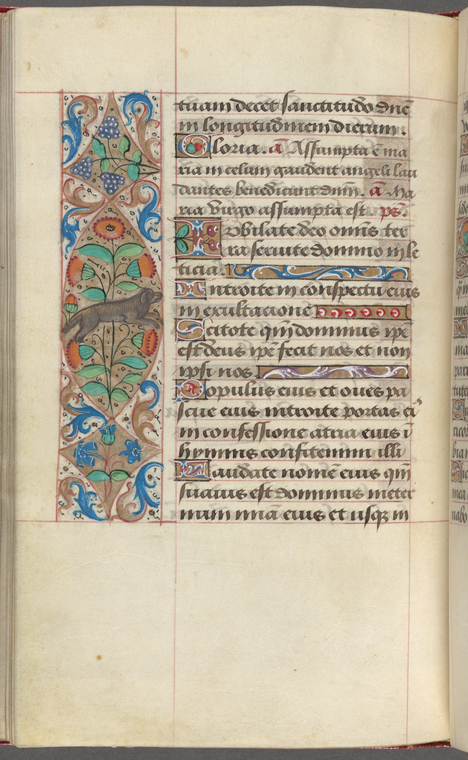 tuam decet sanctitudo dne
in longitudinem dierum.
Gloria. a Assumpta e ma
ria in celum gaudent angeli lau
dantes benedicunt dnm. a Ma
ria virgo assumpta est. ps.
Iubilate deo omnis ter
ra servite domino in le
ticia.
Introite in conspectu eius
in exultacione
Scitote qm dominus ipe
est deus ipe fecit nos et non
ipsi nos.
Populus eius et oves pa
scue eius introite portas ei
in confessione atria eius i
hymnis confitemini illi
Laudate nomen eius qm
suavis est dominus in eter
num mia eius et usq in